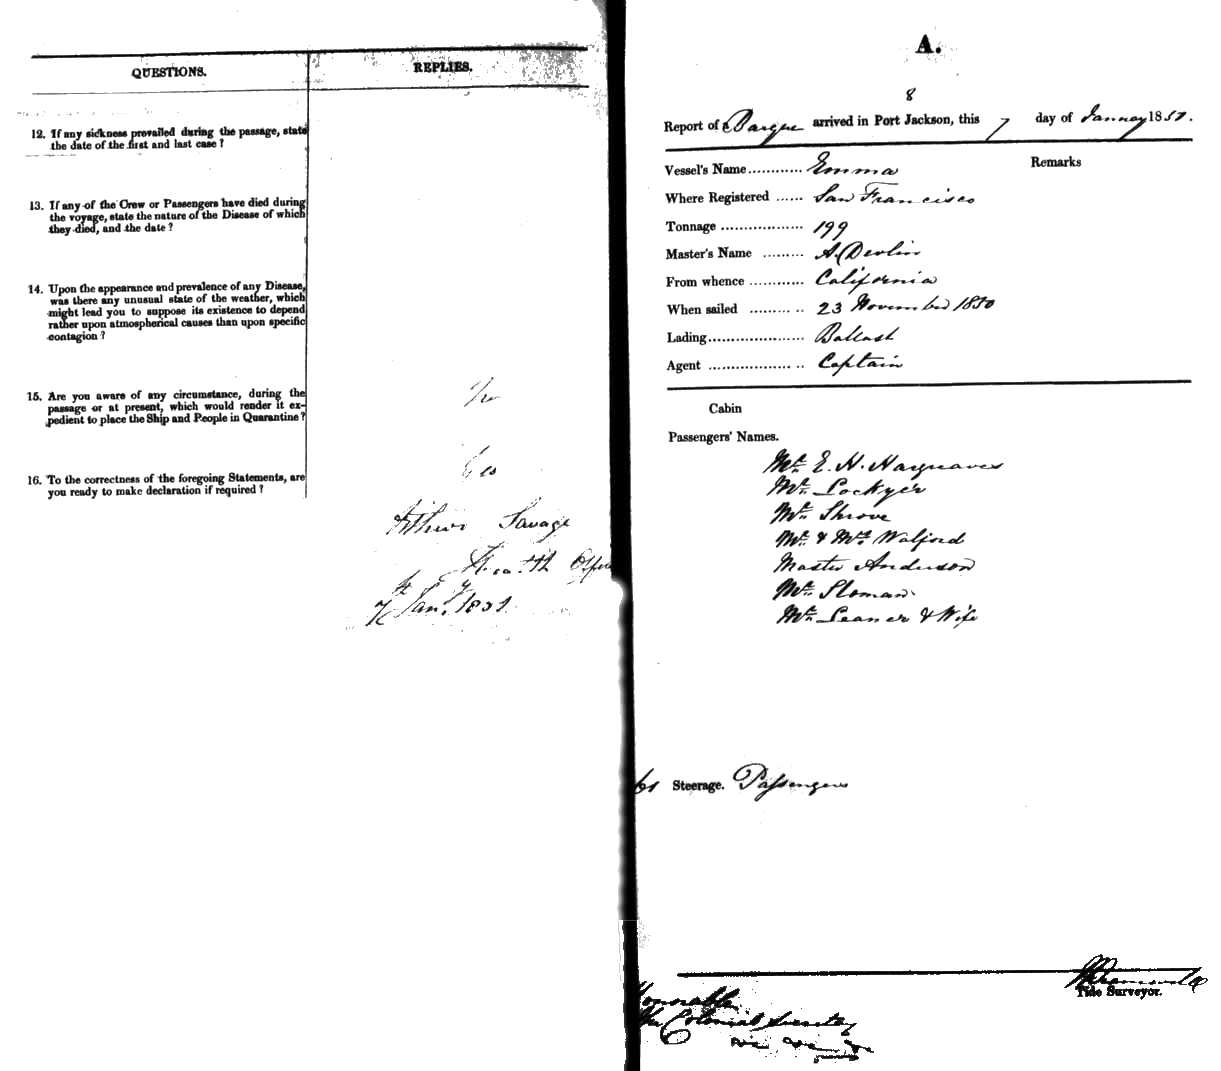 QUESTIONS.
REPLIES.
12. If any sickness prevailed during the passage, state
the date of the first and last case ?
13. If any of the Crew or Passengers have died during
the voyage, state the nature of the Disease of which
they died, and the date ?
14. Upon the appearance and prevalence of any Disease,
was there any unusual state of the weather, which
might lead you to suppose its existence to depend
rather upon atmospherical causes than upon specific
contagion ?
15. Are you aware of any circumstance, during the
passage or at present, which would render it ex-
pedient to place the Ship and People in Quarantine ?
No
16. To the correctness of the foregoing Statements, are
you ready to make declaration if required ?
Yes
Arthur Savage
Health Officer
7th Jany. 1851
A.
8
Report of Barque arrived in Port Jackson, this 7 day of January 1851.
Vessel's Name............ Emma
Remarks
Where Registered ...... San Francisco
Tonnage ................... 199
Master's Name ......... A. Devlin
From whence ............ California
When sailed ......... .. 23 November 1850
Lading...................... Ballast
Agent ................... .. Captain
Cabin
Passengers' Names.
Mr. E. H. Hargraves
Mr. Lockyer
Mr. Shrove
Mr. & Mrs. Walford
Master Anderson
Mr. Sloman
Mr. Leaner & Wife
61 Steerage. Passengers
Tide Surveyor.
Honorable
The Colonial Secretary